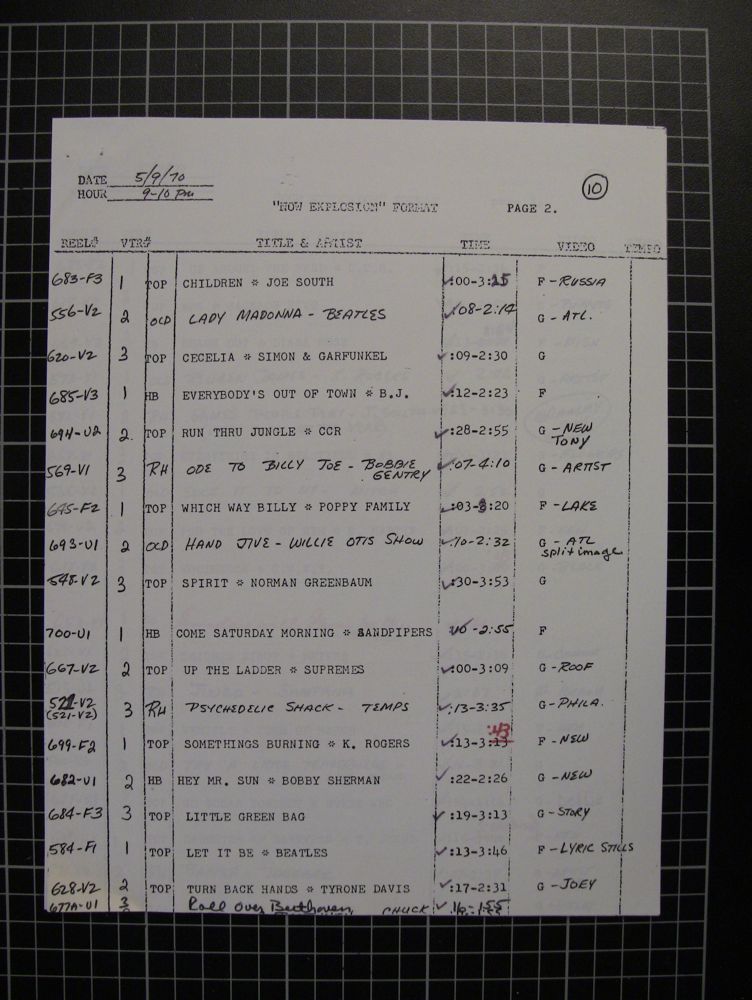 DATE 5/9/70
HOUR 9-10 PM
10
"NOW EXPLOSION" FORMAT PAGE 2.
REEL# VTR# TITLE & ARTIST TIME VIDEO TEMPO
683-F3 1 TOP CHILDREN * JOE SOUTH :00-3:15 F-RUSSIA
556-V2 2 OLD LADY MADONNA - BEATLES :08-2:14 G-ATL.
620-V2 3 TOP CECELIA * SIMON & GARFUNKEL :09-2:30 G
685-V3 1 HB EVERYBODY'S OUT OF TOWN * B.J. :12-2:23 F
694-V2 2. TOP RUN THRU JUNGLE * CCR :28-2:55 G-NEW
TONY
569-V1 3 RH ODE TO BILLY JOE - BOBBIE GENTRY :07-4:10 G-ARTIST
695-F2 1 TOP WHICH WAY BILLY * POPPY FAMILY :03-3:20 F-LAKE
693-V1 2 OLD HAND JIVE - WILLIE OTIS SHOW :10-2:32 G-ATL
split image
548-V2 3 TOP SPIRIT * NORMAN GREENBAUM :30-3:53 G
700-V1 1 HB COME SATURDAY MORNING * SANDPIPERS :10-2:55 F
667-V2 2 TOP UP THE LADDER * SUPREMES :00-3:09 G-ROOF
521-V2 3 RH PSYCHEDELIC SHACK - TEMPS :13-3:35 G-PHILA.
(521-V2)
:43
699-F2 1 TOP SOMETHINGS BURNING * K. ROGERS :13-3:13 F-NEW
682-V1 2 HB HEY MR. SUN * BOBBY SHERMAN :22-2:26 G-NEW
684-F3 3 TOP LITTLE GREEN BAG :19-3:13 G-STORY
584-F1 1 TOP LET IT BE * BEATLES :13-3:46 F-LYRIC STILLS
628-V2 2 TOP TURN BACK HANDS * TYRONE DAVIS :17-2:31 G-JOEY
677A-V1 3 Roll Over Beethoven CHUCK :16-1:55